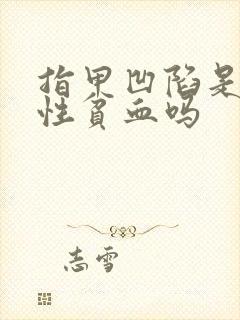 指甲凹陷是
性贫血吗
志雪